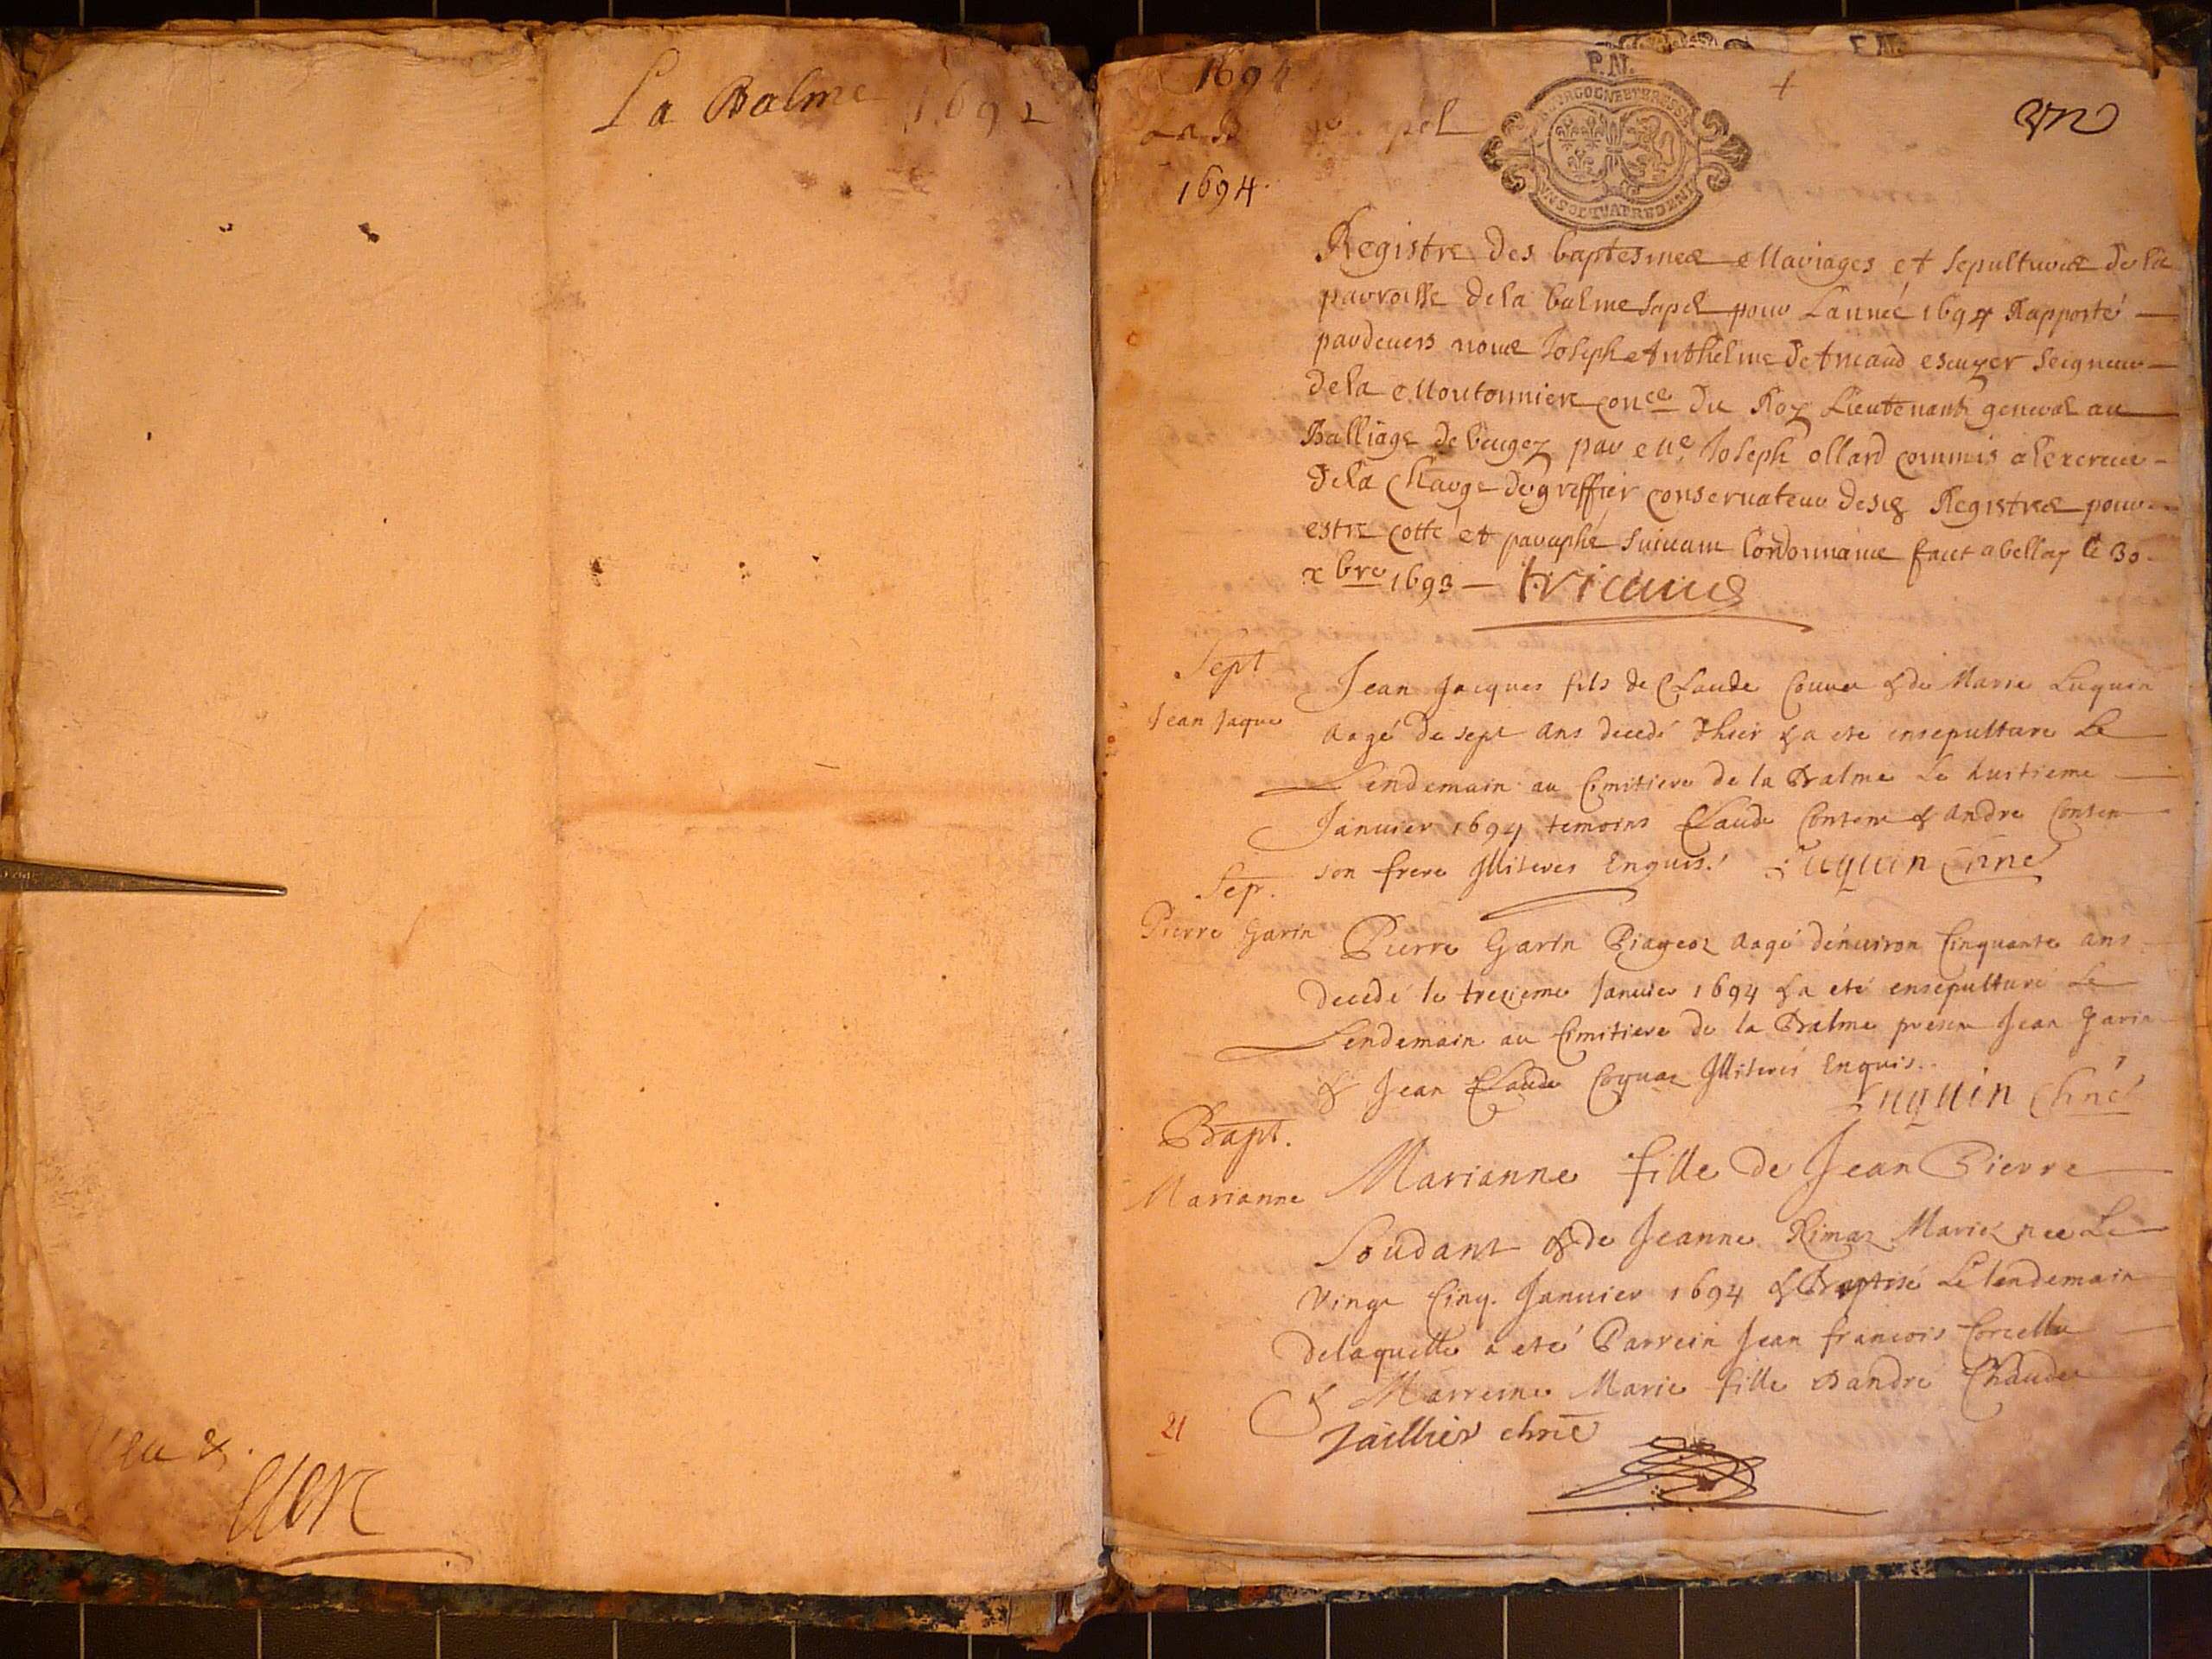 La Balme 1692
Veu &
Clerc
1694
P.N.
1694.
Registre des baptesmes Mariages et sepultures de la
parroisse dela balme sapel pour Lannee 1694 Rapporté
pardevers nous Joseph Anthelme de escuyer seigneur
dela Moutonniere con.ce du Roy Lieutenant general au
Balliage de beugey par Me Joseph ollard commis a lexercice
dela charge de greffier conservateur desd Registres pour
estre cotté et paraphé suivant lordonnance fait a belley le 30
xbre 1693
Sept
Jean Jaque
Jean Jacques fils de Claude & de Marie Luquin
aagé de sept ans decedé & a ete ensepulture Le
Lendemain au Cimitiere de la Balme Le huitieme
Janvier 1694 temoins Claude & Andre
son frere Illiteres Enquis. Luquin Cure
Sep.
Pierre Garin
Pierre Garin aagé dénviron Cinquante ans
decedé le trezieme Janvier 1694 & a eté ensepulturé Le
Lendemain au Cimitiere de la Balme Jean Garin
& Jean Claude Illiterés Enquis.
Luquin
Bapt.
Marianne
Marianne fille de Jean Pierre
Soudant & de Jeanne Rimaz Mariez nee Le
Vingt Cinq. Janvier 1694 & Baptisé Le lendemain
delaquelle a eté Parrein Jean francois
& Marreine Marie fille dandré
Jaillier
21